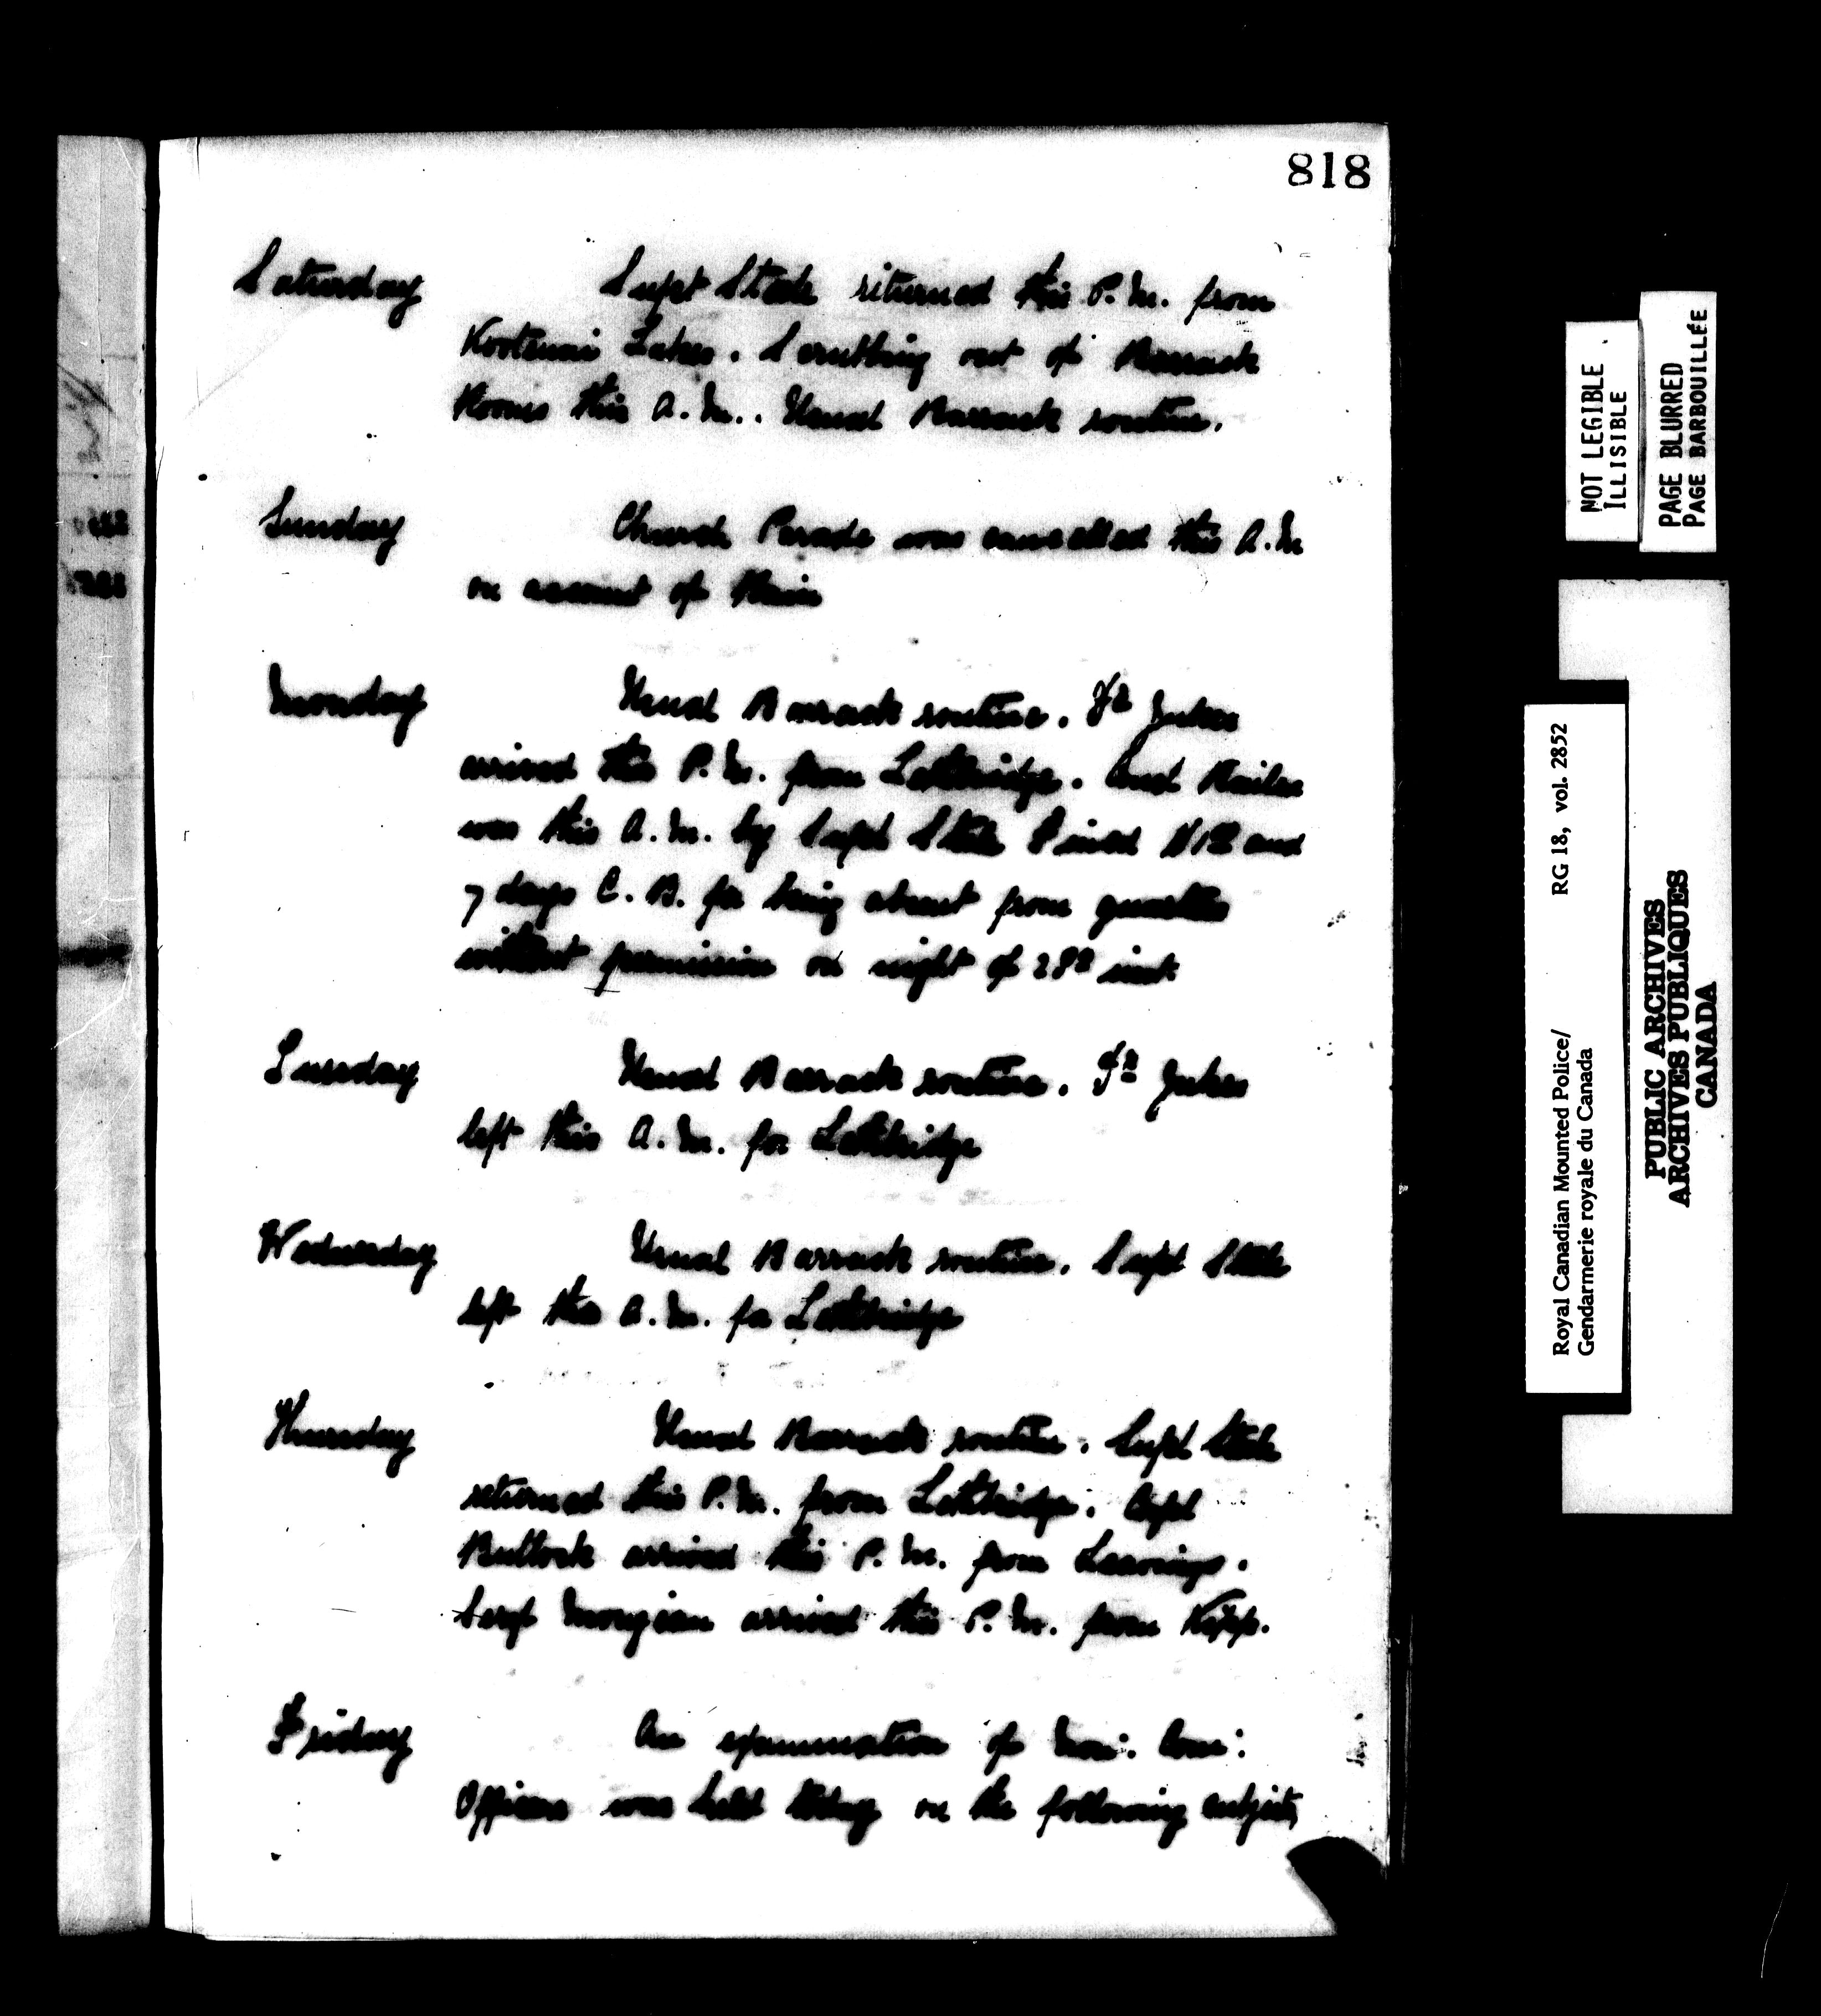 818
Saturday Supt Steele returned this P.M. from
Kootenai Lakes. Scrubbing out of Barrack
Rooms this A.M.. Usual Barrack routine.
Sunday Church Parade was cancelled this A.M
on account of Rain
Monday Usual Barrack routine. Dr Jukes
arrived this P.M. from Lethbridge. Const
was this A.M. by Supt Steele Fined and
7 days C.B. for being absent from quarters
without permission on night of 28th inst.
Tuesday Usual Barrack routine. Dr Jukes
left this A.M. for Lethbridge
Wednesday Usual Barrack routine. Supt Steele
left this A.M. for Lethbridge
Thursday Usual Barrack routine. Supt Steele
returned this P.M. from Lethbridge.
Bullock arrived this P.M. from Leavings.
Sergt arrived this P.M. from Kipp.
Friday An examination of Non: Com:
Officers was held today on the following subjects,
NOT LEGIBLE
ILLISIBLE
PAGE BLURRED
PAGE BARBOUILLÉE
RG 18, vol. 2852
Royal Canadian Mounted Police/
Gendarmerie royale du Canada
PUBLIC ARCHIVES
ARCHIVES PUBLIQUES
CANADA